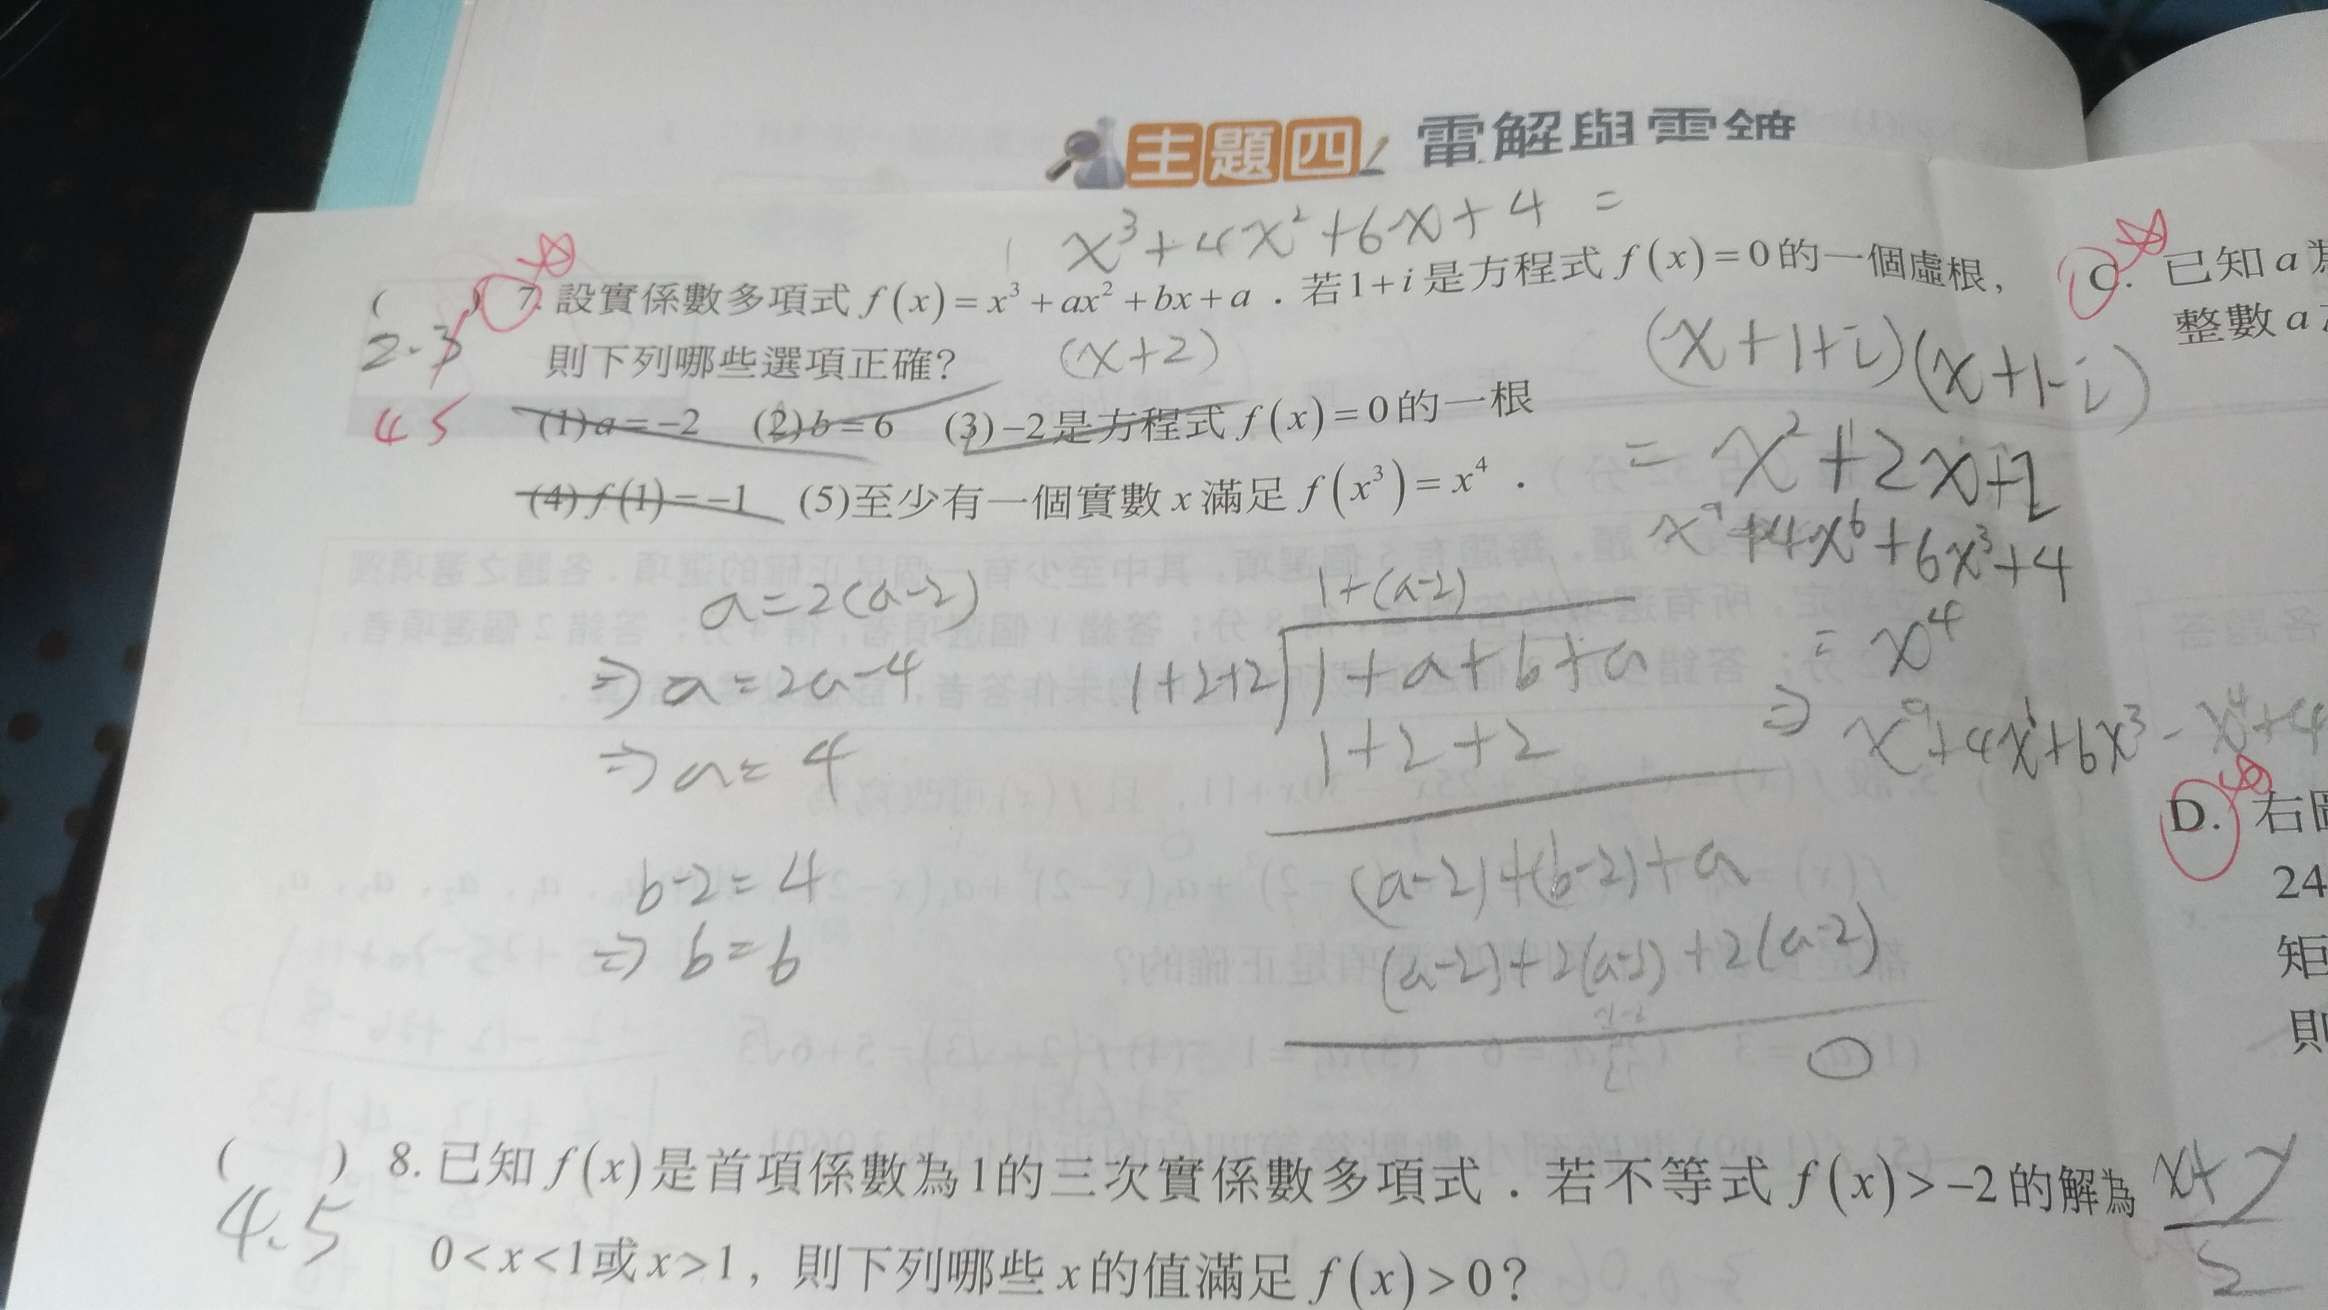 主題四 電解與電鍍
x³+4x²+6x+4 =
( ) 7. 設實係數多項式 f(x)=x³+ax²+bx+a．若1+i是方程式 f(x)=0的一個虛根，
2.3
則下列哪些選項正確？
(x+2)
(x+1+i)(x+1-i)
45
(1) a=-2 (2) b=6 (3) -2是方程式 f(x)=0的一根
= x²+2x+2
(4) f(1)=-1 (5)至少有一個實數 x 滿足 f(x³)=x⁴．
x⁹+4x⁶+6x³+4
= x⁴
⇒ x⁹+4x⁶+6x³-x⁴+4
a=2(a-2)
⇒ a=2a-4
⇒ a=4
b-2=4
⇒ b=6
1+(a-2)
1+2+2 1+a+b+a
1+2+2
(a-2)+(b-2)+a
(a-2)+2(a-2)+2(a-2)
0
( ) 8. 已知 f(x)是首項係數為1的三次實係數多項式．若不等式 f(x)>-2的解為
4.5
0<x<1或x>1，則下列哪些 x 的值滿足 f(x)>0？
C. 已知 a
整數 a
D. 右
24
矩
則
x+y
2